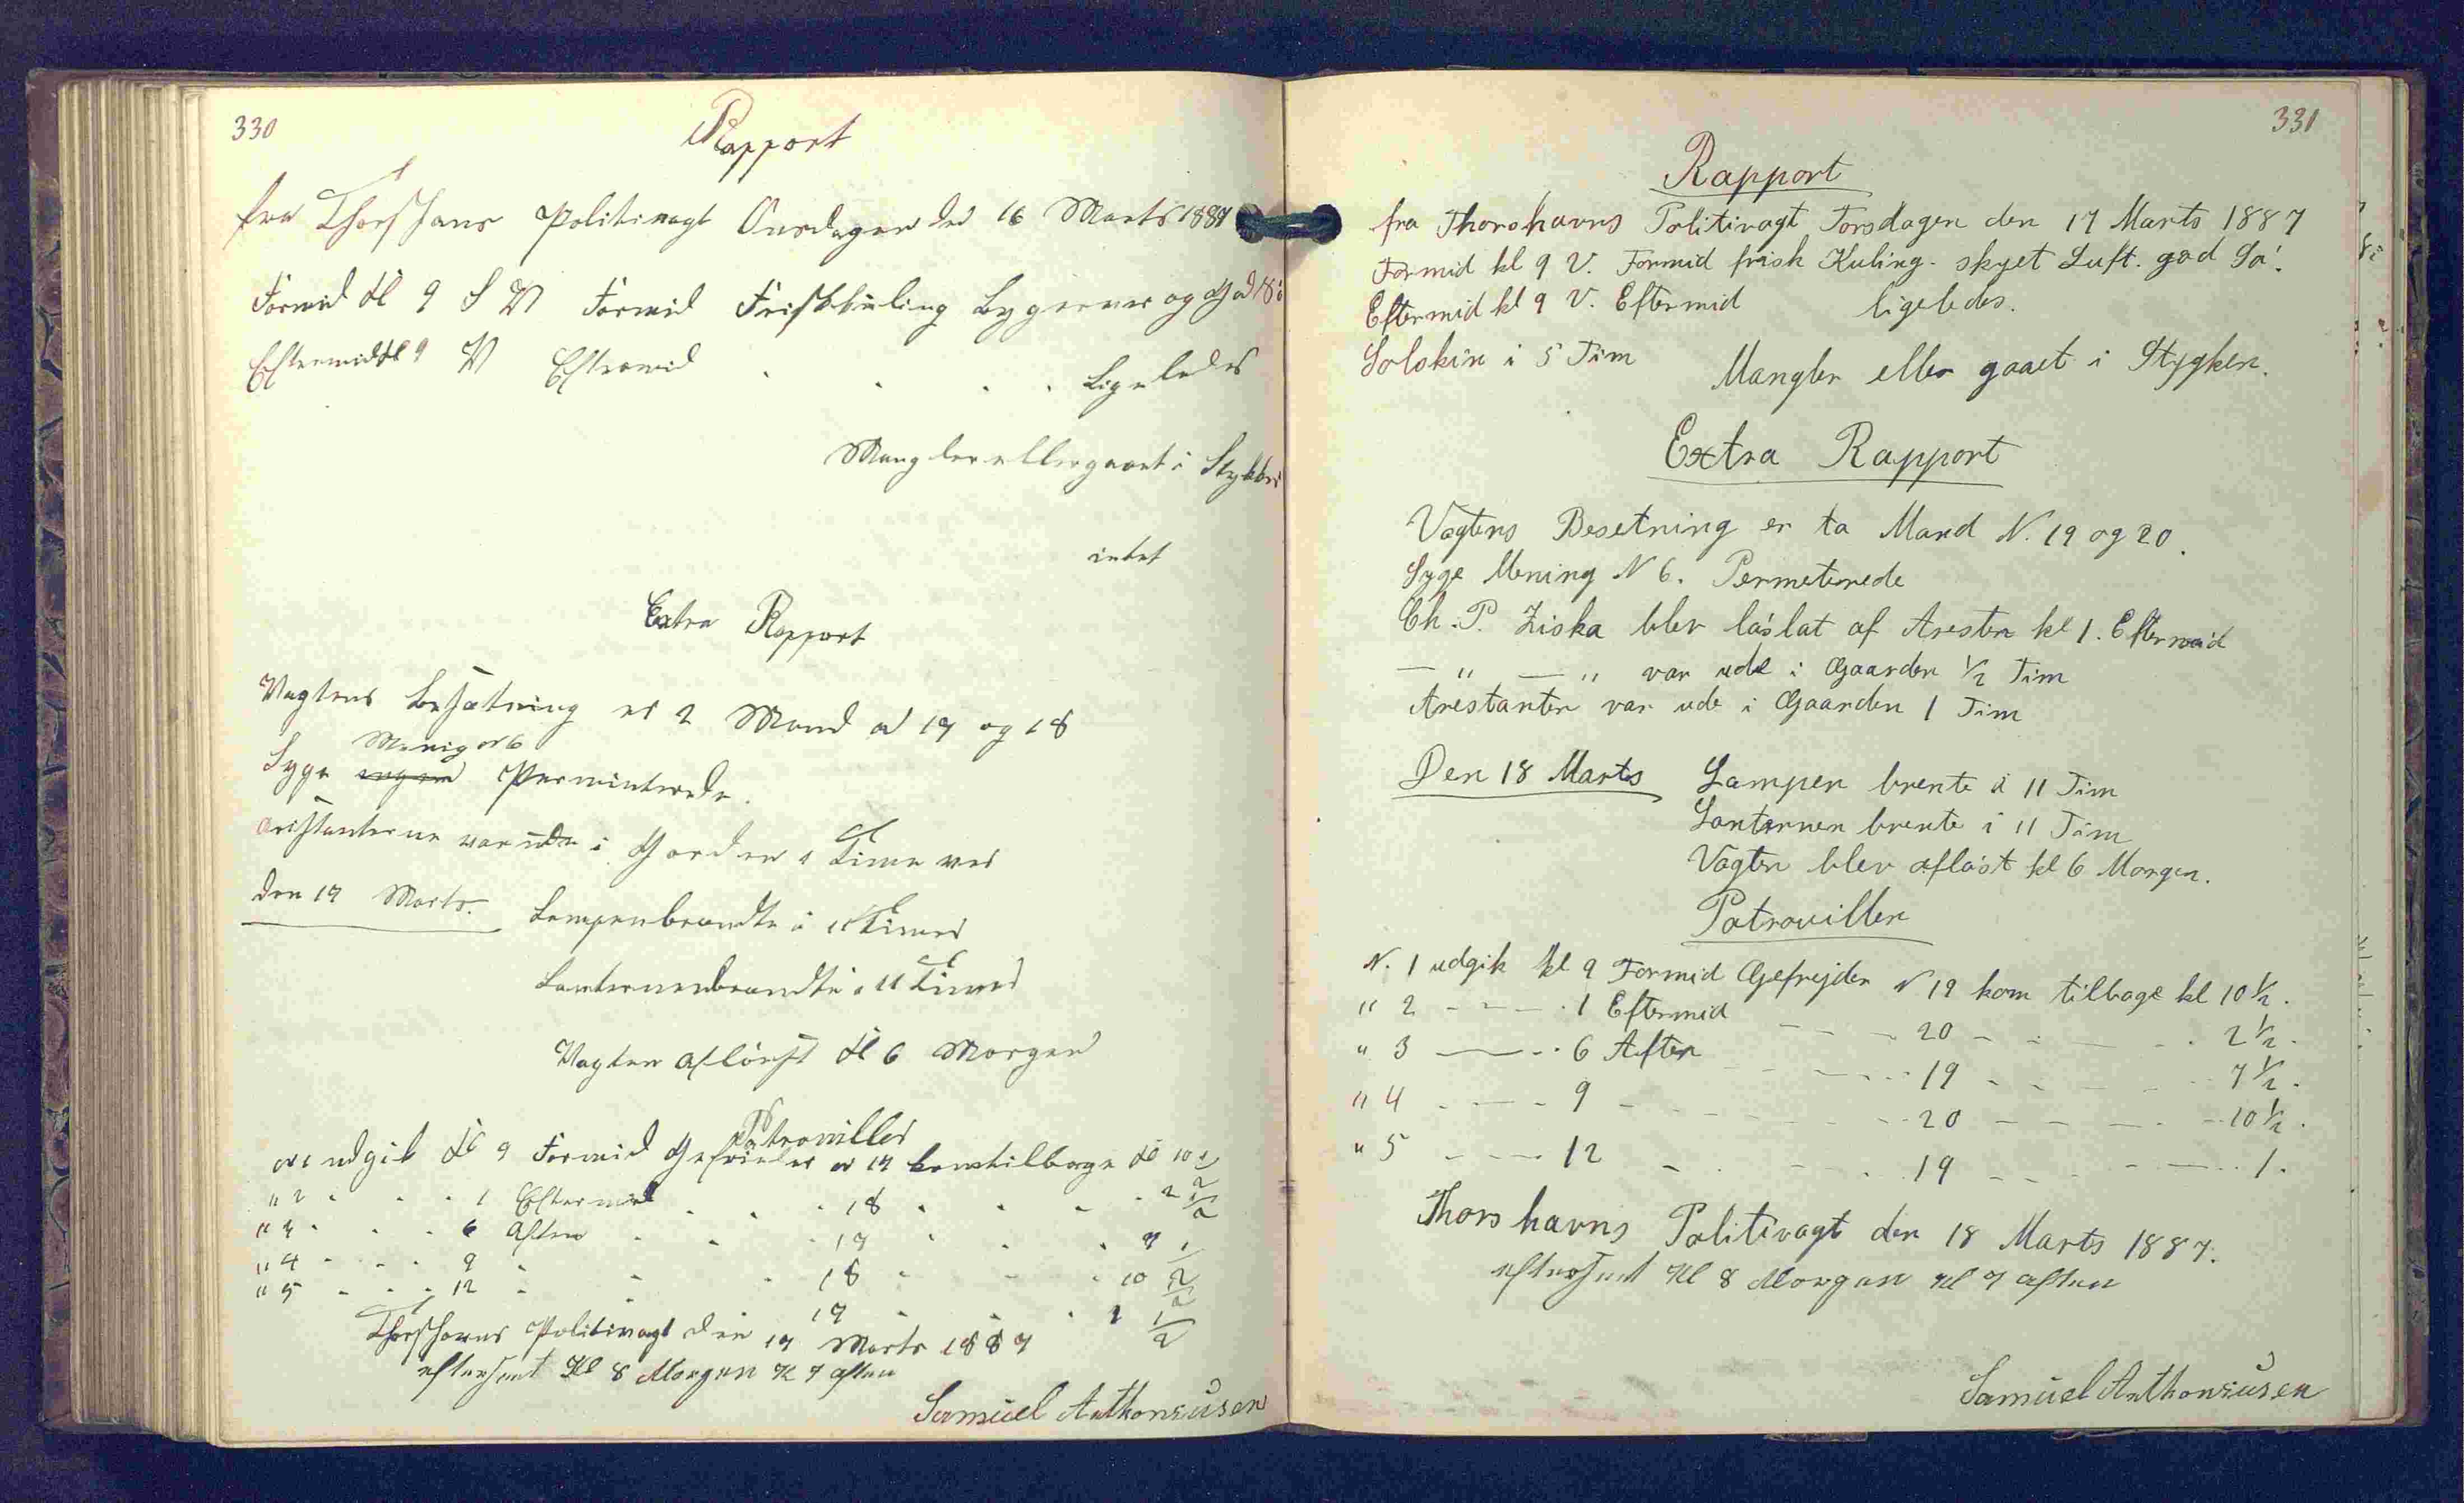 330
Rapport
fra Thorshavns Politivagt Onsdagen den 16 Marts 1887
Formid Kl 9 S V Formid Friskkuling Bygerner og God Sö
Eftermid Kl 9 V Eftermid . . . . Ligeledes
Mangler eller gaaet i Stykker
intet
Extra Rapport
Vagtens Besætning er 2 Mand N 17 og 18
Menig N 6
Syge ingen Permiterede.
Aristanterne var ude i Gorden 1 Time
den 17 Marts. Lampen brændte i 11 Timer
Lanternen brændte i 11 Timer
Vagten aflöist Kl 6 Morgen
Patrouiller
N 1 udgik Kl 9 Formid Gefreider N 17 kom tilbage Kl 10 1/2
" 2 . . . 1 Eftermid . . . 18 . . . . 2 1/2
" 3 . . . 6 Aften . . . 17 . . . 7 1/2
" 4 - . . 9 . . . 18 . . . 10 1/2
" 5 . . . 12 . . . 17 . . . 1 1/2
Thorshavns Politivagt den 17 Marts 1887
efterseet Kl 8 Morgen Kl 7 aften
Samuel Anthoniusen
331
Rapport
fra Thorshavns Politivagt Torsdagen den 17 Marts 1887
Formid kl 9 V. Formid frisk Kuling. skyet Luft. god Sö.
Eftermid kl 9 V. Eftermid ligeledes.
Solskin i 5 Tim
Mangler eller gaaet i Stygker.
Extra Rapport
Vagtens Besetning er to Mand N. 19 og 20.
Syge Mening N 6. Permeterede
Ch. P. Ziska blev löslat af Aresten kl 1. Eftermid
— " — " var ude i Gaarden 1/2 Tim
Arestanten var ude i Gaarden 1 Tim
Den 18 Marts Lampen brente i 11 Tim
Lanternen brente i 11 Tim
Vagten blev aflöst kl 6 Morgen.
Patrouiller
N. 1 udgik kl 9 Formid Gefrejder N 19 kom tilbage kl 10 1/2.
" 2 - - - . 1 Eftermid - - - 20 - - - . 2 1/2.
" 3 — - . 6 Aften - - - 19 - - - - 7 1/2.
" 4 - - - 9 - - - - 20 - - - - 10 1/2.
" 5 - - - 12 - . - - 19 - - - - 1.
Thorshavns Politivagt den 18 Marts 1887.
efterseet Kl 8 Morgen Kl 7 aften
Samuel Anthoniusen